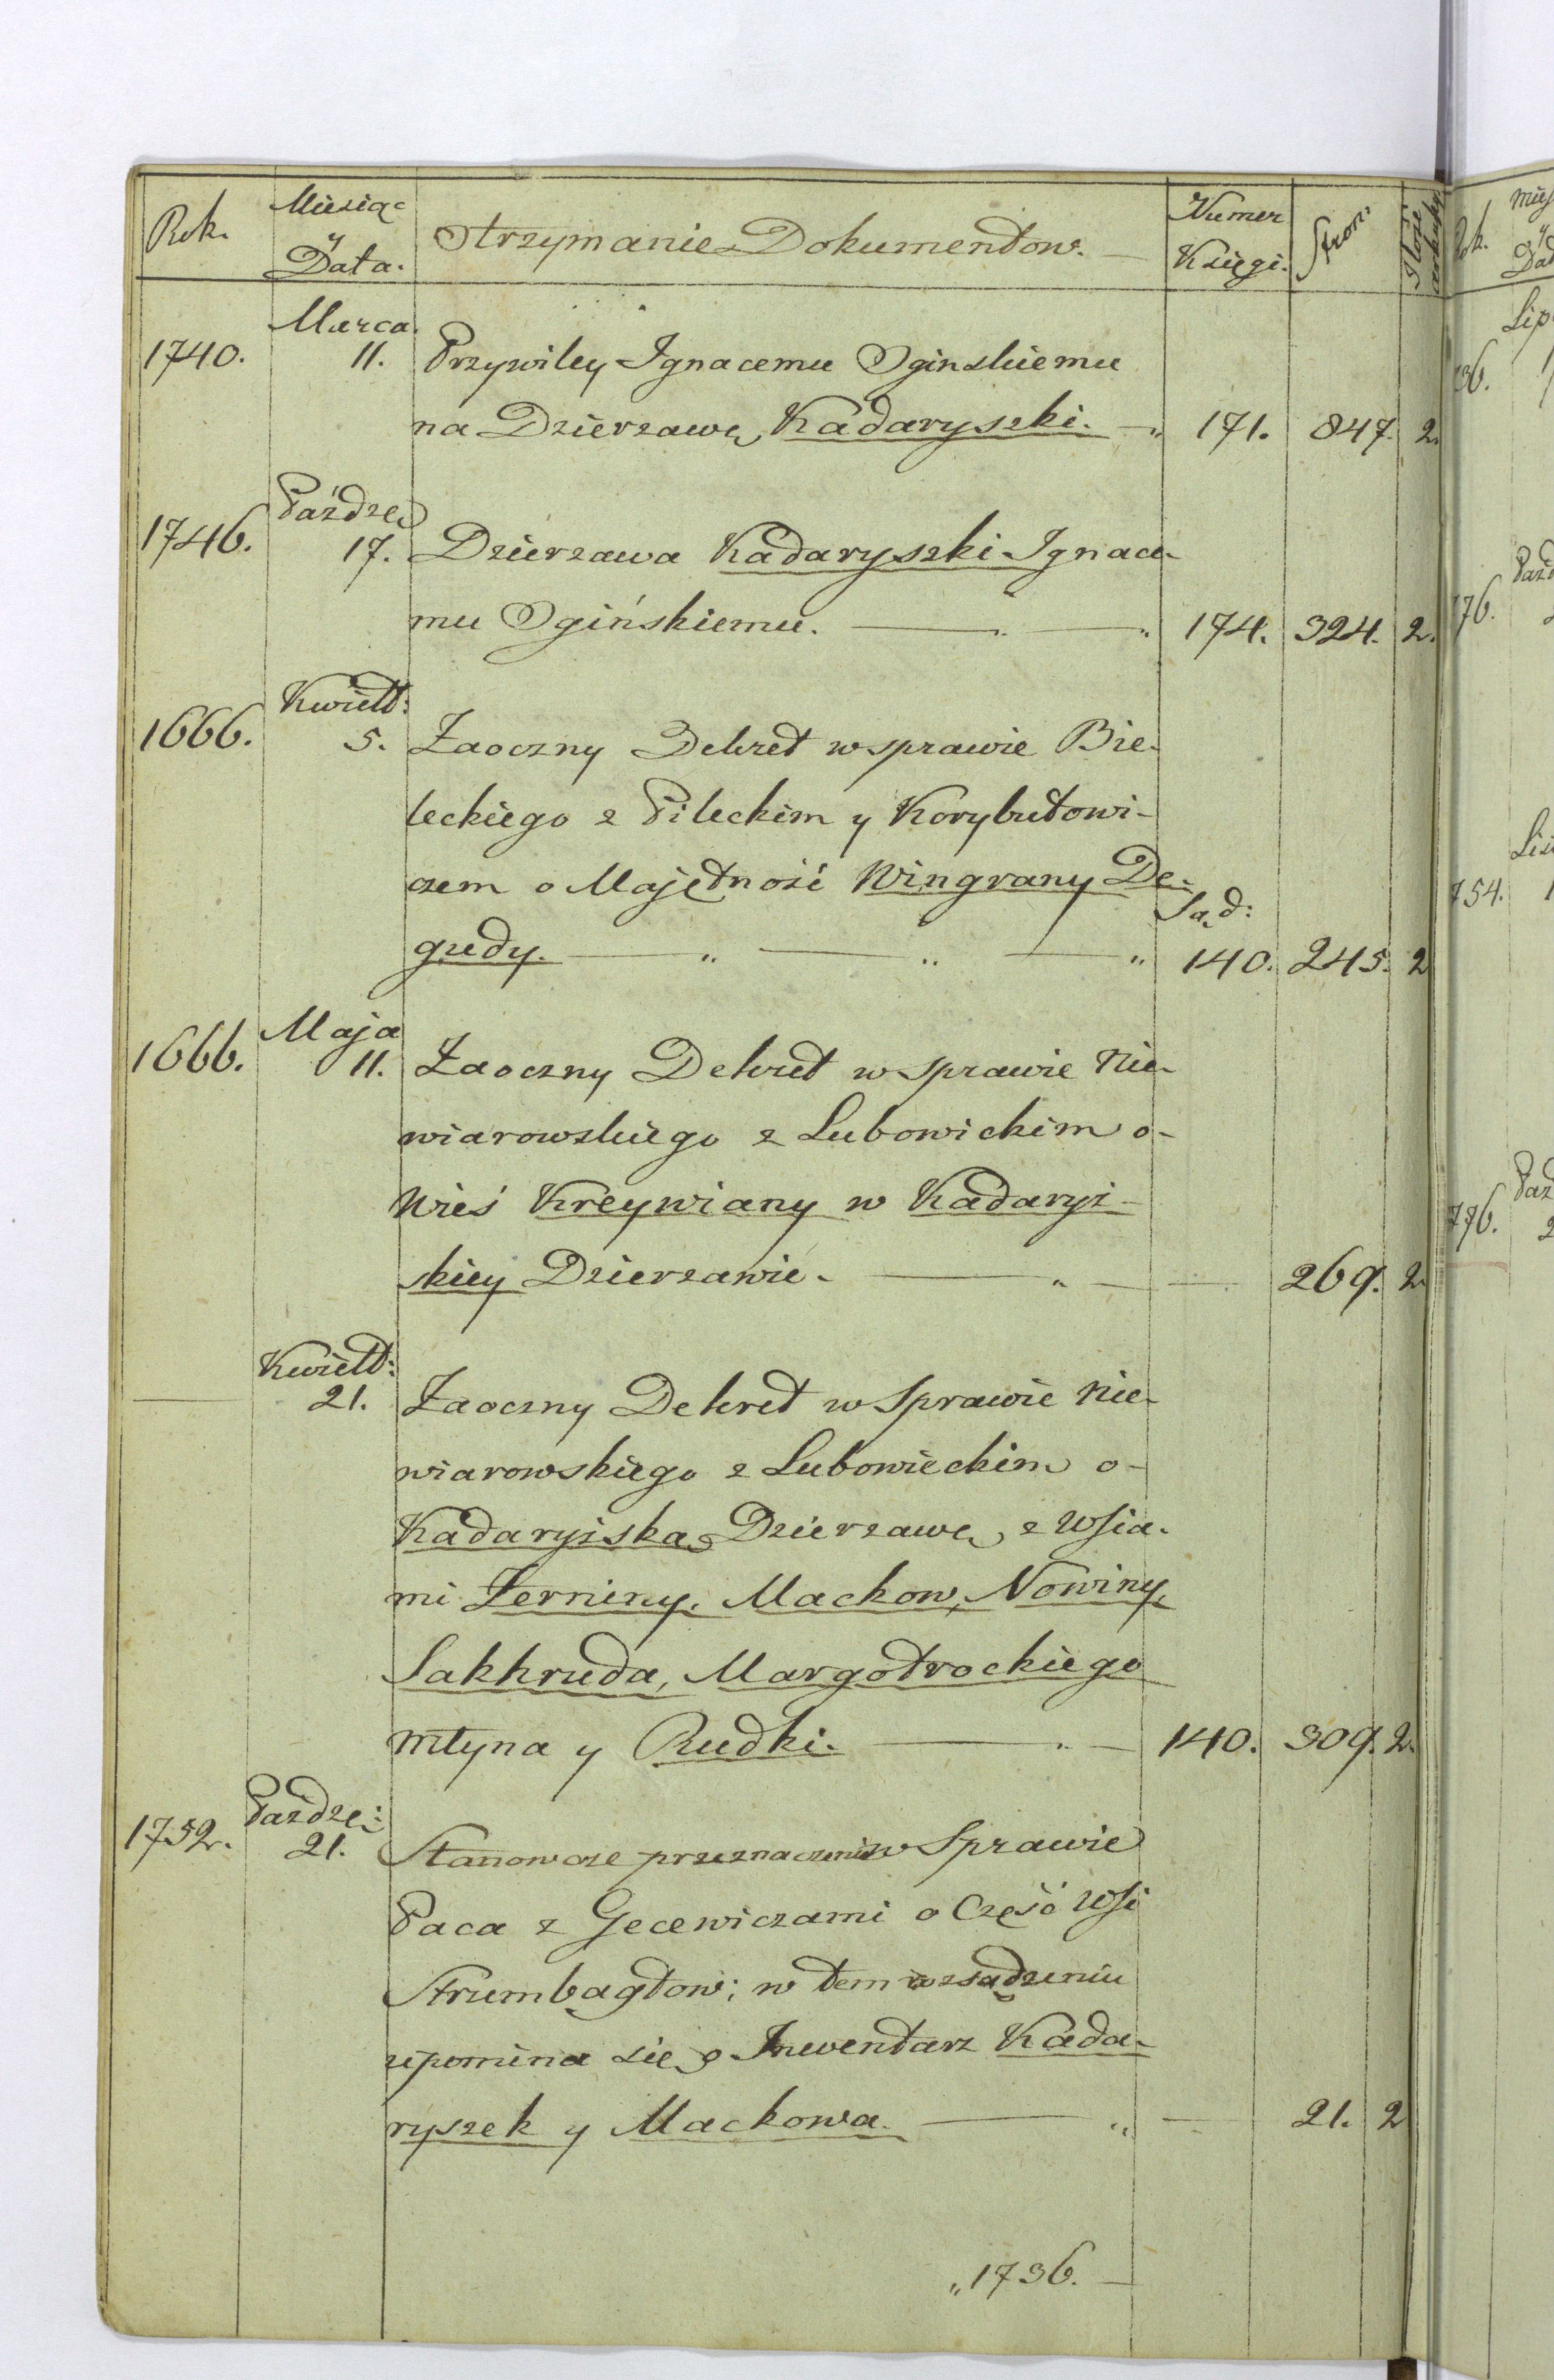 Rok. Miesiąc y Data. Otrzymanie Dokumentow. Numer Księgi. Stron:
1740. Marca 11. Przywiley Ignacemu Oginskiemu
na Dzierzawę Kadaryszki. — „ 171. 847. 2.
1746. Paźdze:
17. Dzierzawa Kadaryszki Ignace-
mu Ogińskiemu. — „ — „ 174. 324. 2.
1666. Kwiet:
5. Zaoczny Dekret w sprawie Bie-
leckiego z Pileckim y Korybutowi-
czem o Majętność Wingrany De-
Sąd:
gudy. — „ — „ — „ 140. 245. 2
1666. Maja
11. Zaoczny Dekret w sprawie Nie-
wiarowskiego z Lubowickim o-
Wieś Kreywiany w Kadaryi-
skiey Dzierzawie. — „ — — 269. 2.
Kwiet:
— 21. Zaoczny Dekret w Sprawie Nie-
wiarowskiego z Lubowieckim o-
Kadaryiską Dzierzawę z Wsia-
mi Zerniny, Mackow, Nowiny,
Sakhruda, Margotrockiego
Młyna y Rudki. — „ — 140. 309. 2.
1752. Pazdze:
21. Stanowcze przeznaczenie w Sprawie
Paca z Gecewiczami o Część Wsi
Strumbagłow; w tem
upomina się o Inwentarz Kada-
ryszek y Mackowa. — „ — 21. 2
„1736. —